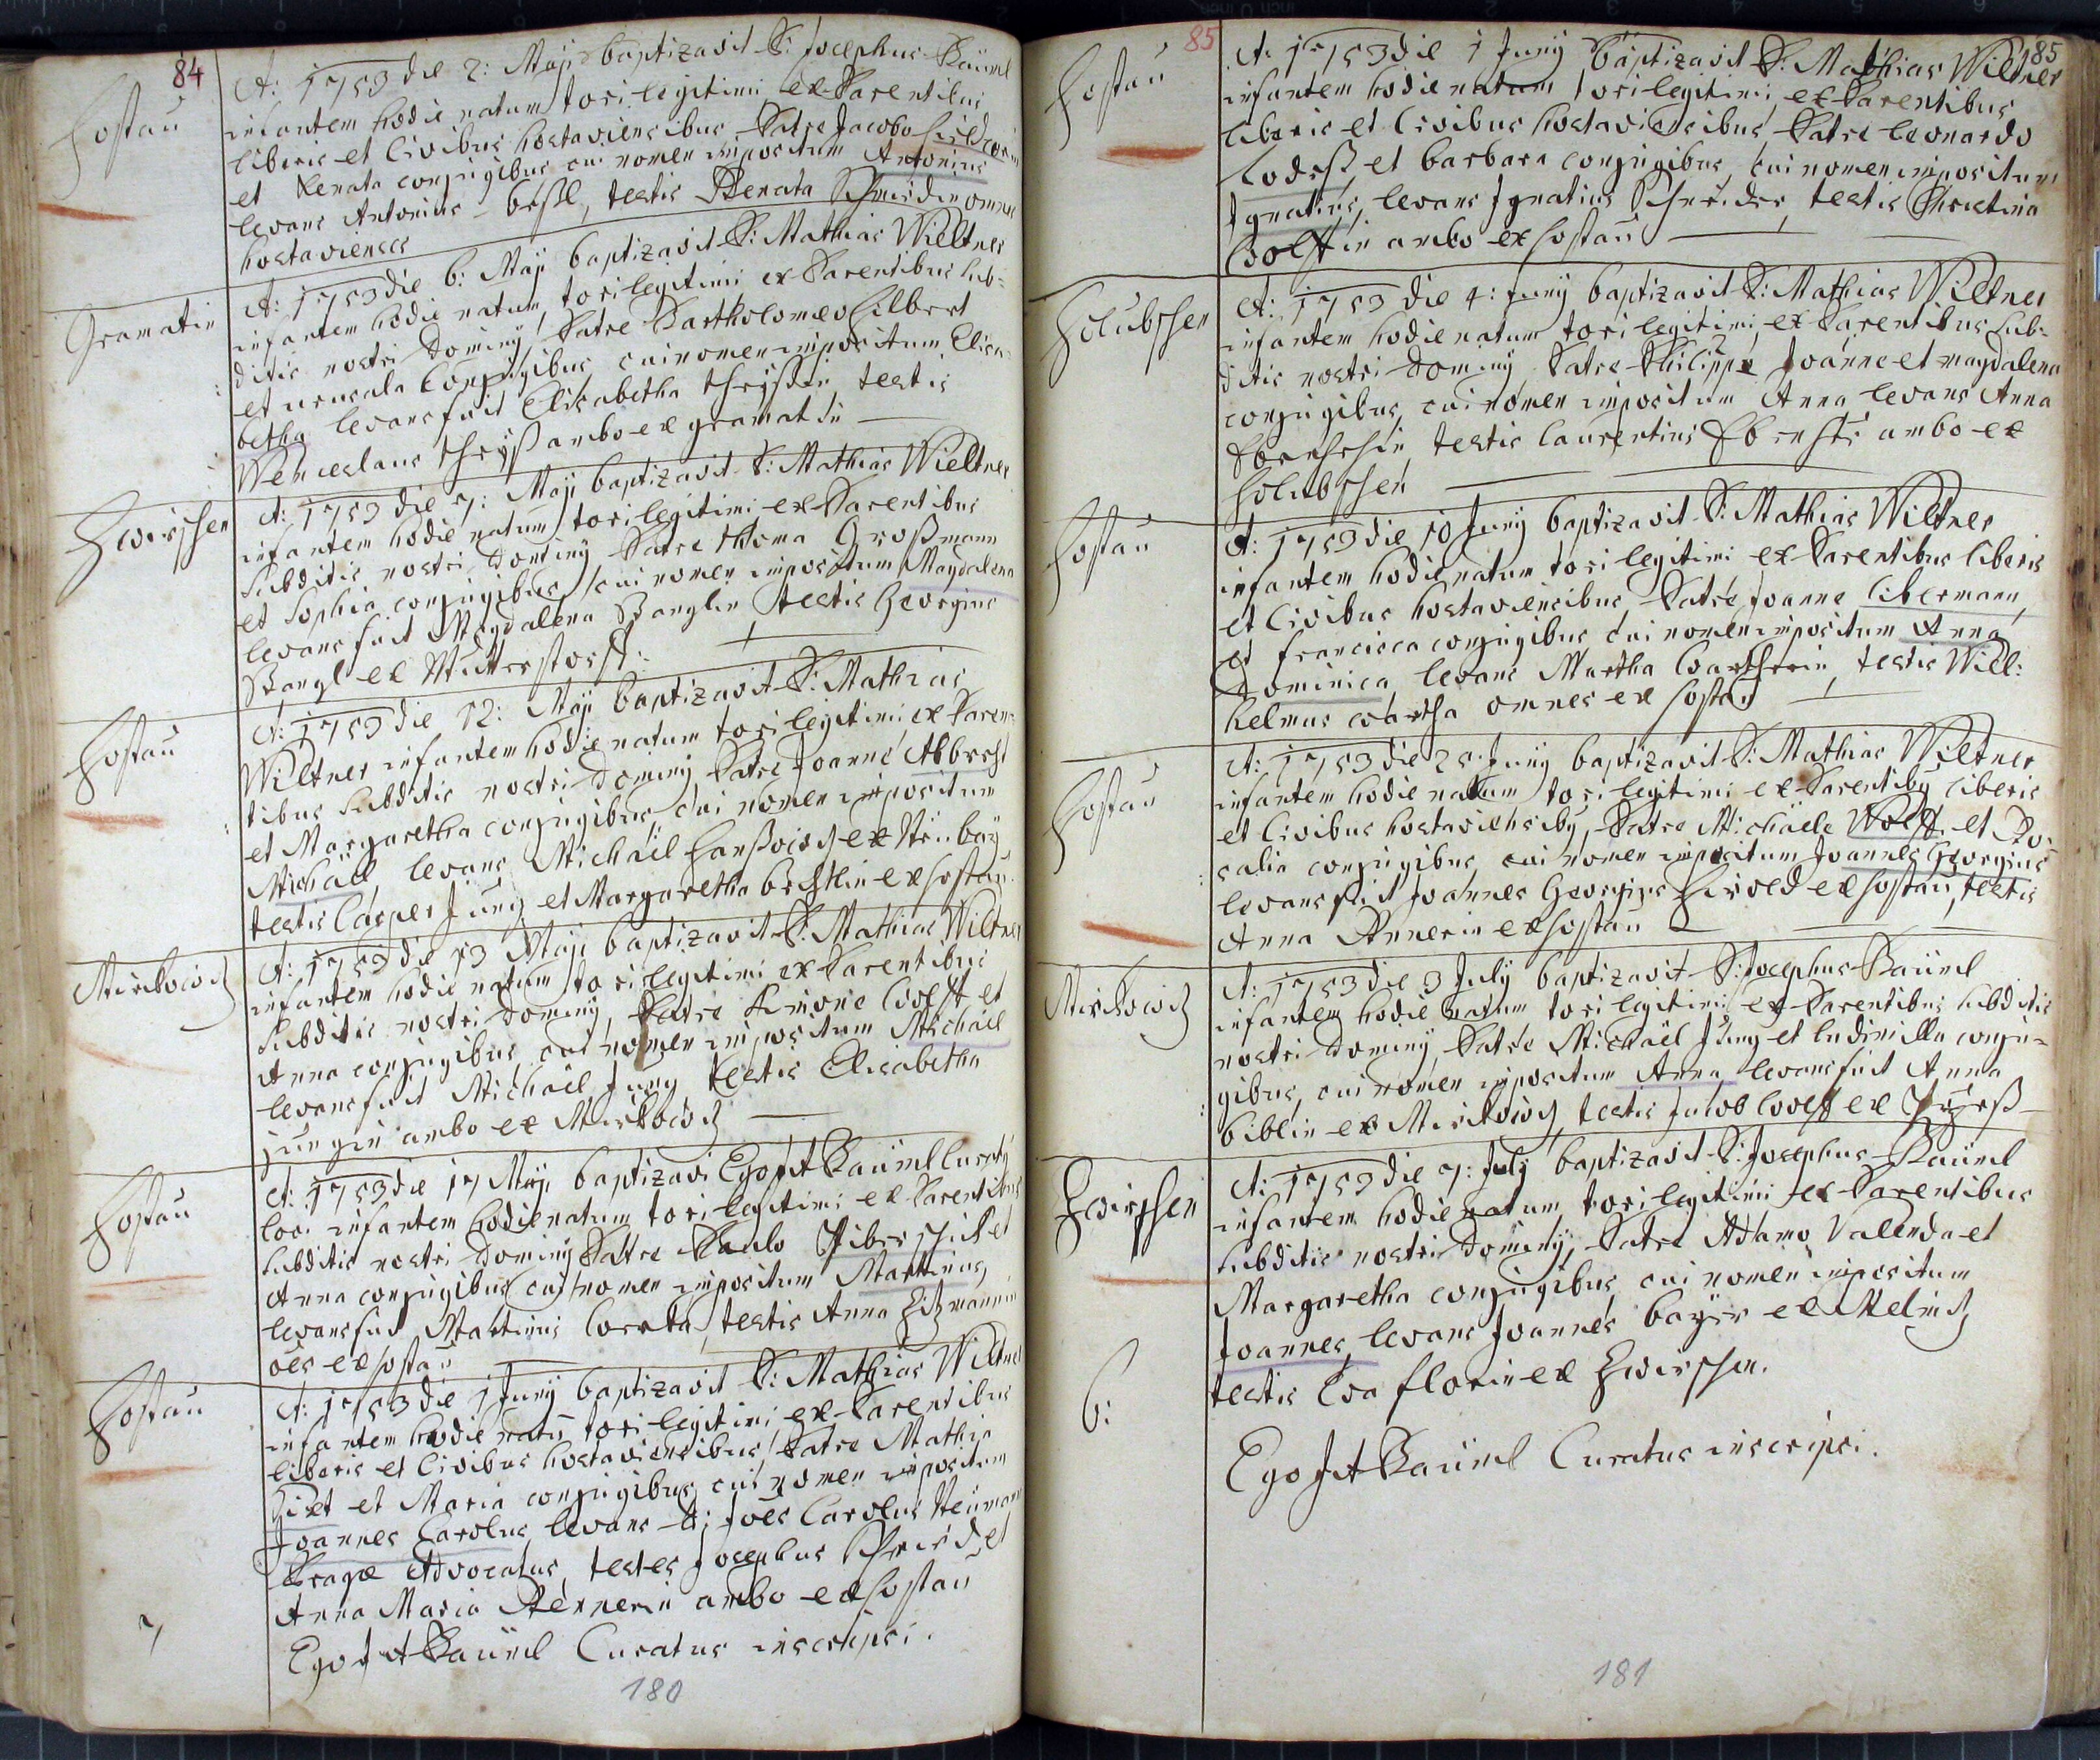 84
Hostau
A: 1753 die 2: Maji baptizavit P: Josephus Bäüml
infantem hodie natum tori legitimi ex Parentibus
liberis et Civibus hostaviensibus, Patre Jacobo
et Renata conjugibus cui nomen impositum Antonius
levans Antonius testis Renata omnes
hostavienses
Gramatin
A: 1753 die 6: Maji baptizavit P: Mathias Wiltner
infantem hodie natum, tori legitimi ex Parentibus sub=
ditis nostri Dominij Patre Bartholomeo Hilbert
et ursula Conjugibus, cui nomen impositum Elisa=
betha levans fuit Elisabetha testis
Wenceslaus ambo ex gramatin
Zwirschen
A: 1753 die 7: Maji baptizavit P: Mathias Wieltner
infantem hodie natum tori legitimi ex Parentibus
Subditis nostri Dominij Patre Thoma Großmann
et Sophia conjugibus, cui nomen impositum Magdalena
levans fuit Magdalena Stanglin, testis Georgius
Stangl ex
Hostau
A: 1753 die 12: Maji baptizavit P: Mathias
Wiltner infantem hodie natum tori legitimi ex Paren=
tibus Subditis nostri Dominij Patre Joanne Albrecht
et Margaretha conjugibus cui nomen impositum
Michäel, levans Michäel ex
testis Casper Jung et Margaretha ex Hostau
Mirkowitz
A: 1753 die 13 Maji baptizavit P: Mathias Wiltner
infantem hodie natum tori legitimi ex Parentibus
Subditis nostri Dominij, Patre Simone Wolff et
Anna conjugibus, cui nomen impositum Michäel
levans fuit Michäel Jung testis Elisabetha
Jungin ambo ex Mirkowitz
Hostau
A: 1753 die 17 Maji baptizavi Ego J A Bäüml Curatus
loci infantem hodie natum tori legitimi ex Parentibus
Subditis nostri Dominij Patre Paulo et
Anna conjugibus cui nomen impositum Martinus,
levans fuit Martinus testis Anna
oes ex Hostau
Hostau
A: 1753 die 1 Junij baptizavit P: Mathias Wiltner
infantem hodie natu tori legitimi ex Parentibus
liberis et Civibus hostaviensibus, Patre Mathia
et Maria conjugibus, cui nomen impositum
Joannes Carolus, levans D: Joes Carolus Neümann
Pragæ Advocatus, testes Josephus Schmidt et
Anna Maria Rennerin ambo ex Hostau
7
Ego J A Bäüml Curatus inscripsi.
180
85
185
Hostau
A: 1753 die 1 Junij baptizavit P: Mathias Wiltner
infantem hodie natum tori legitimi, ex Parentibus
liberis et Civibus hostaviensibus, Patre Leonardo
et barbara conjugibus, cui nomen impositum
Ignatius, levans Ignatius Schneider, testis Christina
Wolffin ambo ex Hostau
Holubschen
A: 1753 die 4: Junij baptizavit P: Mathias Wiltner
infantem hodie natum tori legitimi ex Parentibus Sub=
ditis nostri Dominij Patre Philippe Joanne et magdalena
conjugibus, cui nomen impositum Anna levans Anna
testis laurentius ambo ex
Holubschen
Hostau
A: 1753 die 10 Junij baptizavit P: Mathias Wiltner
infantem hodie natum tori legitimi ex Parentibus liberis
et Civibus hostaviensibus, Patre Joanne libermann,
et francisca conjugibus cui nomen impositum Anna
Dominica, levans Martha testis Will:
helmus omnes ex Hostau
Hostau
A: 1753 die 25: Junij baptizavit P: Mathias Wiltner
infantem hodie natum tori legitimi ex Parentiby liberis
et Civibus hostaviensiby, Patre Michäele Wolff et Ro=
salia conjugibus, cui nomen impositum Joannes Georgius
levans fuit Joannes Georgius ex Hostau, testis
Anna Rennerin ex Hostau
Mirkowitz
A: 1753 die 3 July baptizavit P: Josephus Bäüml
infantem hodie natum tori legitimi ex Parentibus Subditis
nostri Dominij, Patre Michäel Jung et ludimilla conju=
gibus, cui nomen impositum Anna, levans fuit Anna
biblin ex Mirkowitz, testis Jacob Wolff ex
Zwirschen
A: 1753 die 7: July baptizavit P: Josephus Bäüml
infantem hodie natum tori legitimi ex Parentibus
Subditis nostri Dominij, Patre Adamo Vallenda et
Margaretha conjugibus, cui nomen impositum
Joannes, levans Joannes bayer ex Melnitz
testis Eva florin ex Zwirschen.
6:
Ego J A Bäüml Curatus inscripsi.
181